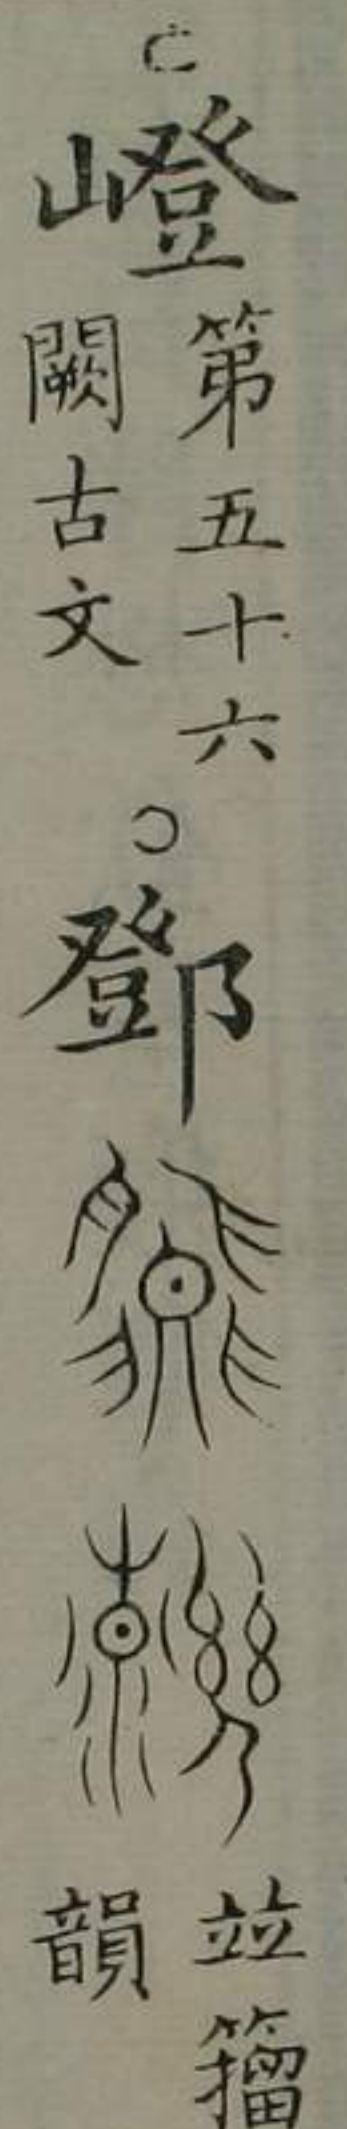 嶝第五十六闕古文○鄧並籀韻